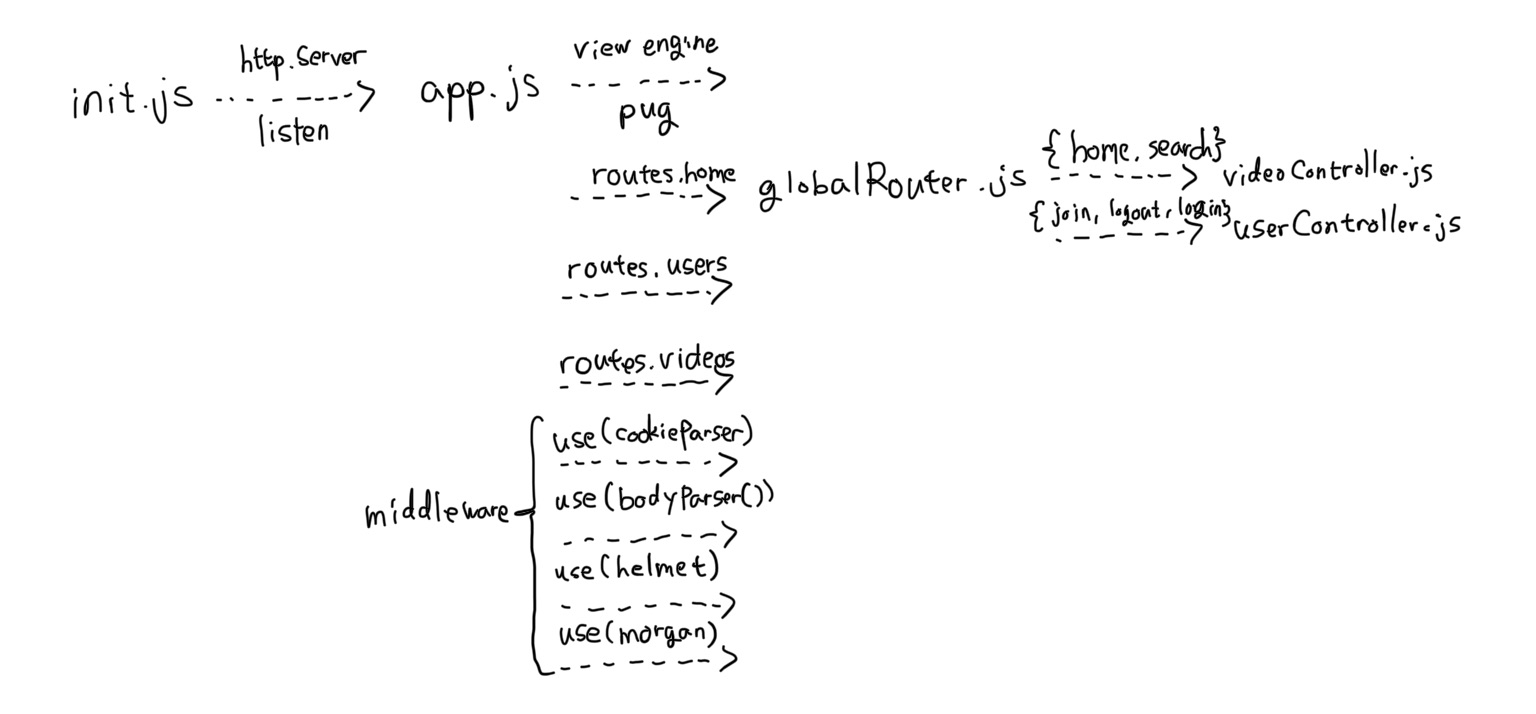 http.Server
init.js
listen
app.js
view engine
pug
routes.home
globalRouter.js
{home, search}
videoController.js
{join, logout, login}
userController.js
routes.users
routes.videos
middleware
use(cookieParser)
use(bodyParser())
use(helmet)
use(morgan)